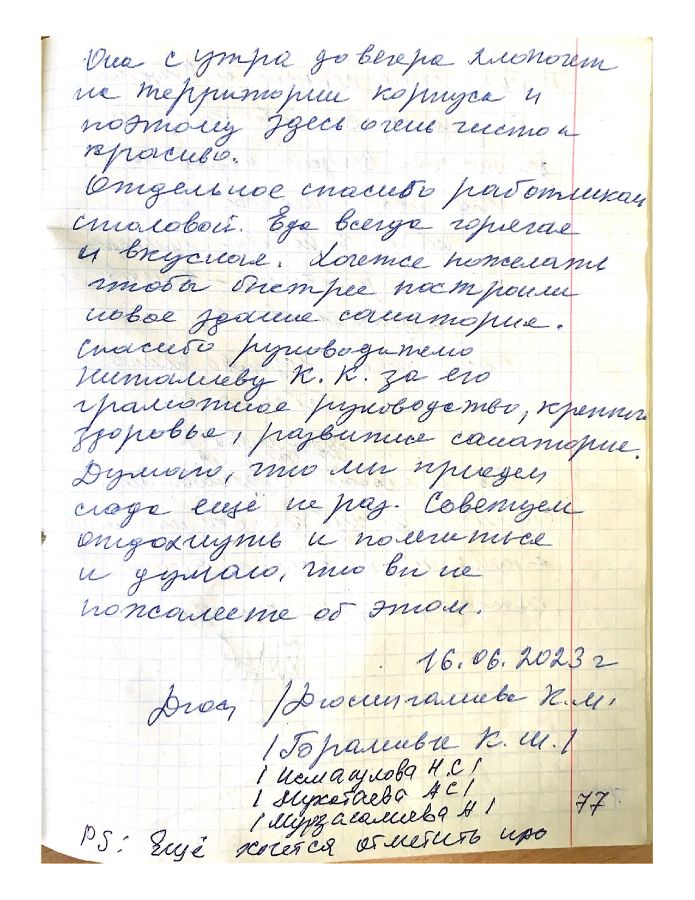 Она с утра до вечера хлопочет
на территории корпуса и
поэтому здесь очень чисто и
красиво.
Отдельное спасибо работникам
столовой. Еда всегда горячая
и вкусная. Хочется пожелать
чтобы быстрее построили
новое здание санатория.
Спасибо руководителю
К. К. за его
грамотное руководство, крепкого
здоровье, развитие санаторие.
Думаю, что мы приедем
сюда ещё не раз. Советуем
отдохнуть и полечиться
и думаю, что вы не
пожалеете об этом.
16.06.2023 г
/Дюсингалиева К.М.
К. Ш. /
/ Исмагулова Н.С /
/ Мухотаева А С /
/ Мурзагалиева А /
77
PS: Ещё хочется отметить про